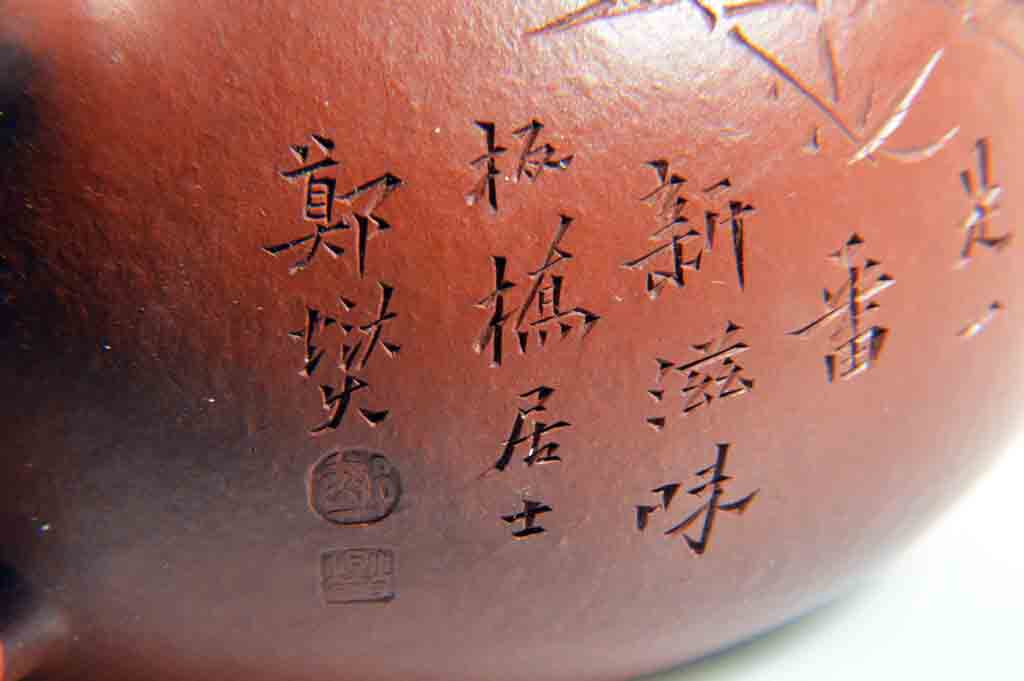 是一
番
新滋味
板橋居士
鄭燮